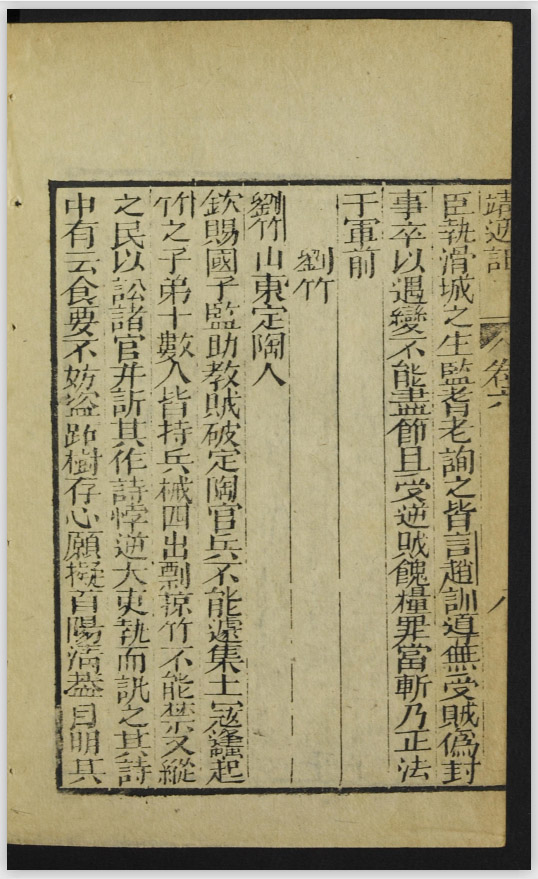 靖逆記
卷六
八
臣執滑城之生監耆老詢之皆言趙訓導無受賊僞封
事卒以遇變不能盡節且受逆賊餽糧罪當斬乃正法
于軍前
劉竹
劉竹山東定陶人
欽賜國子監助教賊破定陶官兵不能遽集土寇蠭起
竹之子弟十數人皆持兵械四出剽掠竹不能禁又縱
之民以訟諸官并訴其作詩悖逆大吏執而訊之其詩
中有云食要不妨盜跖樹存心願擬首陽滴蓋自明其